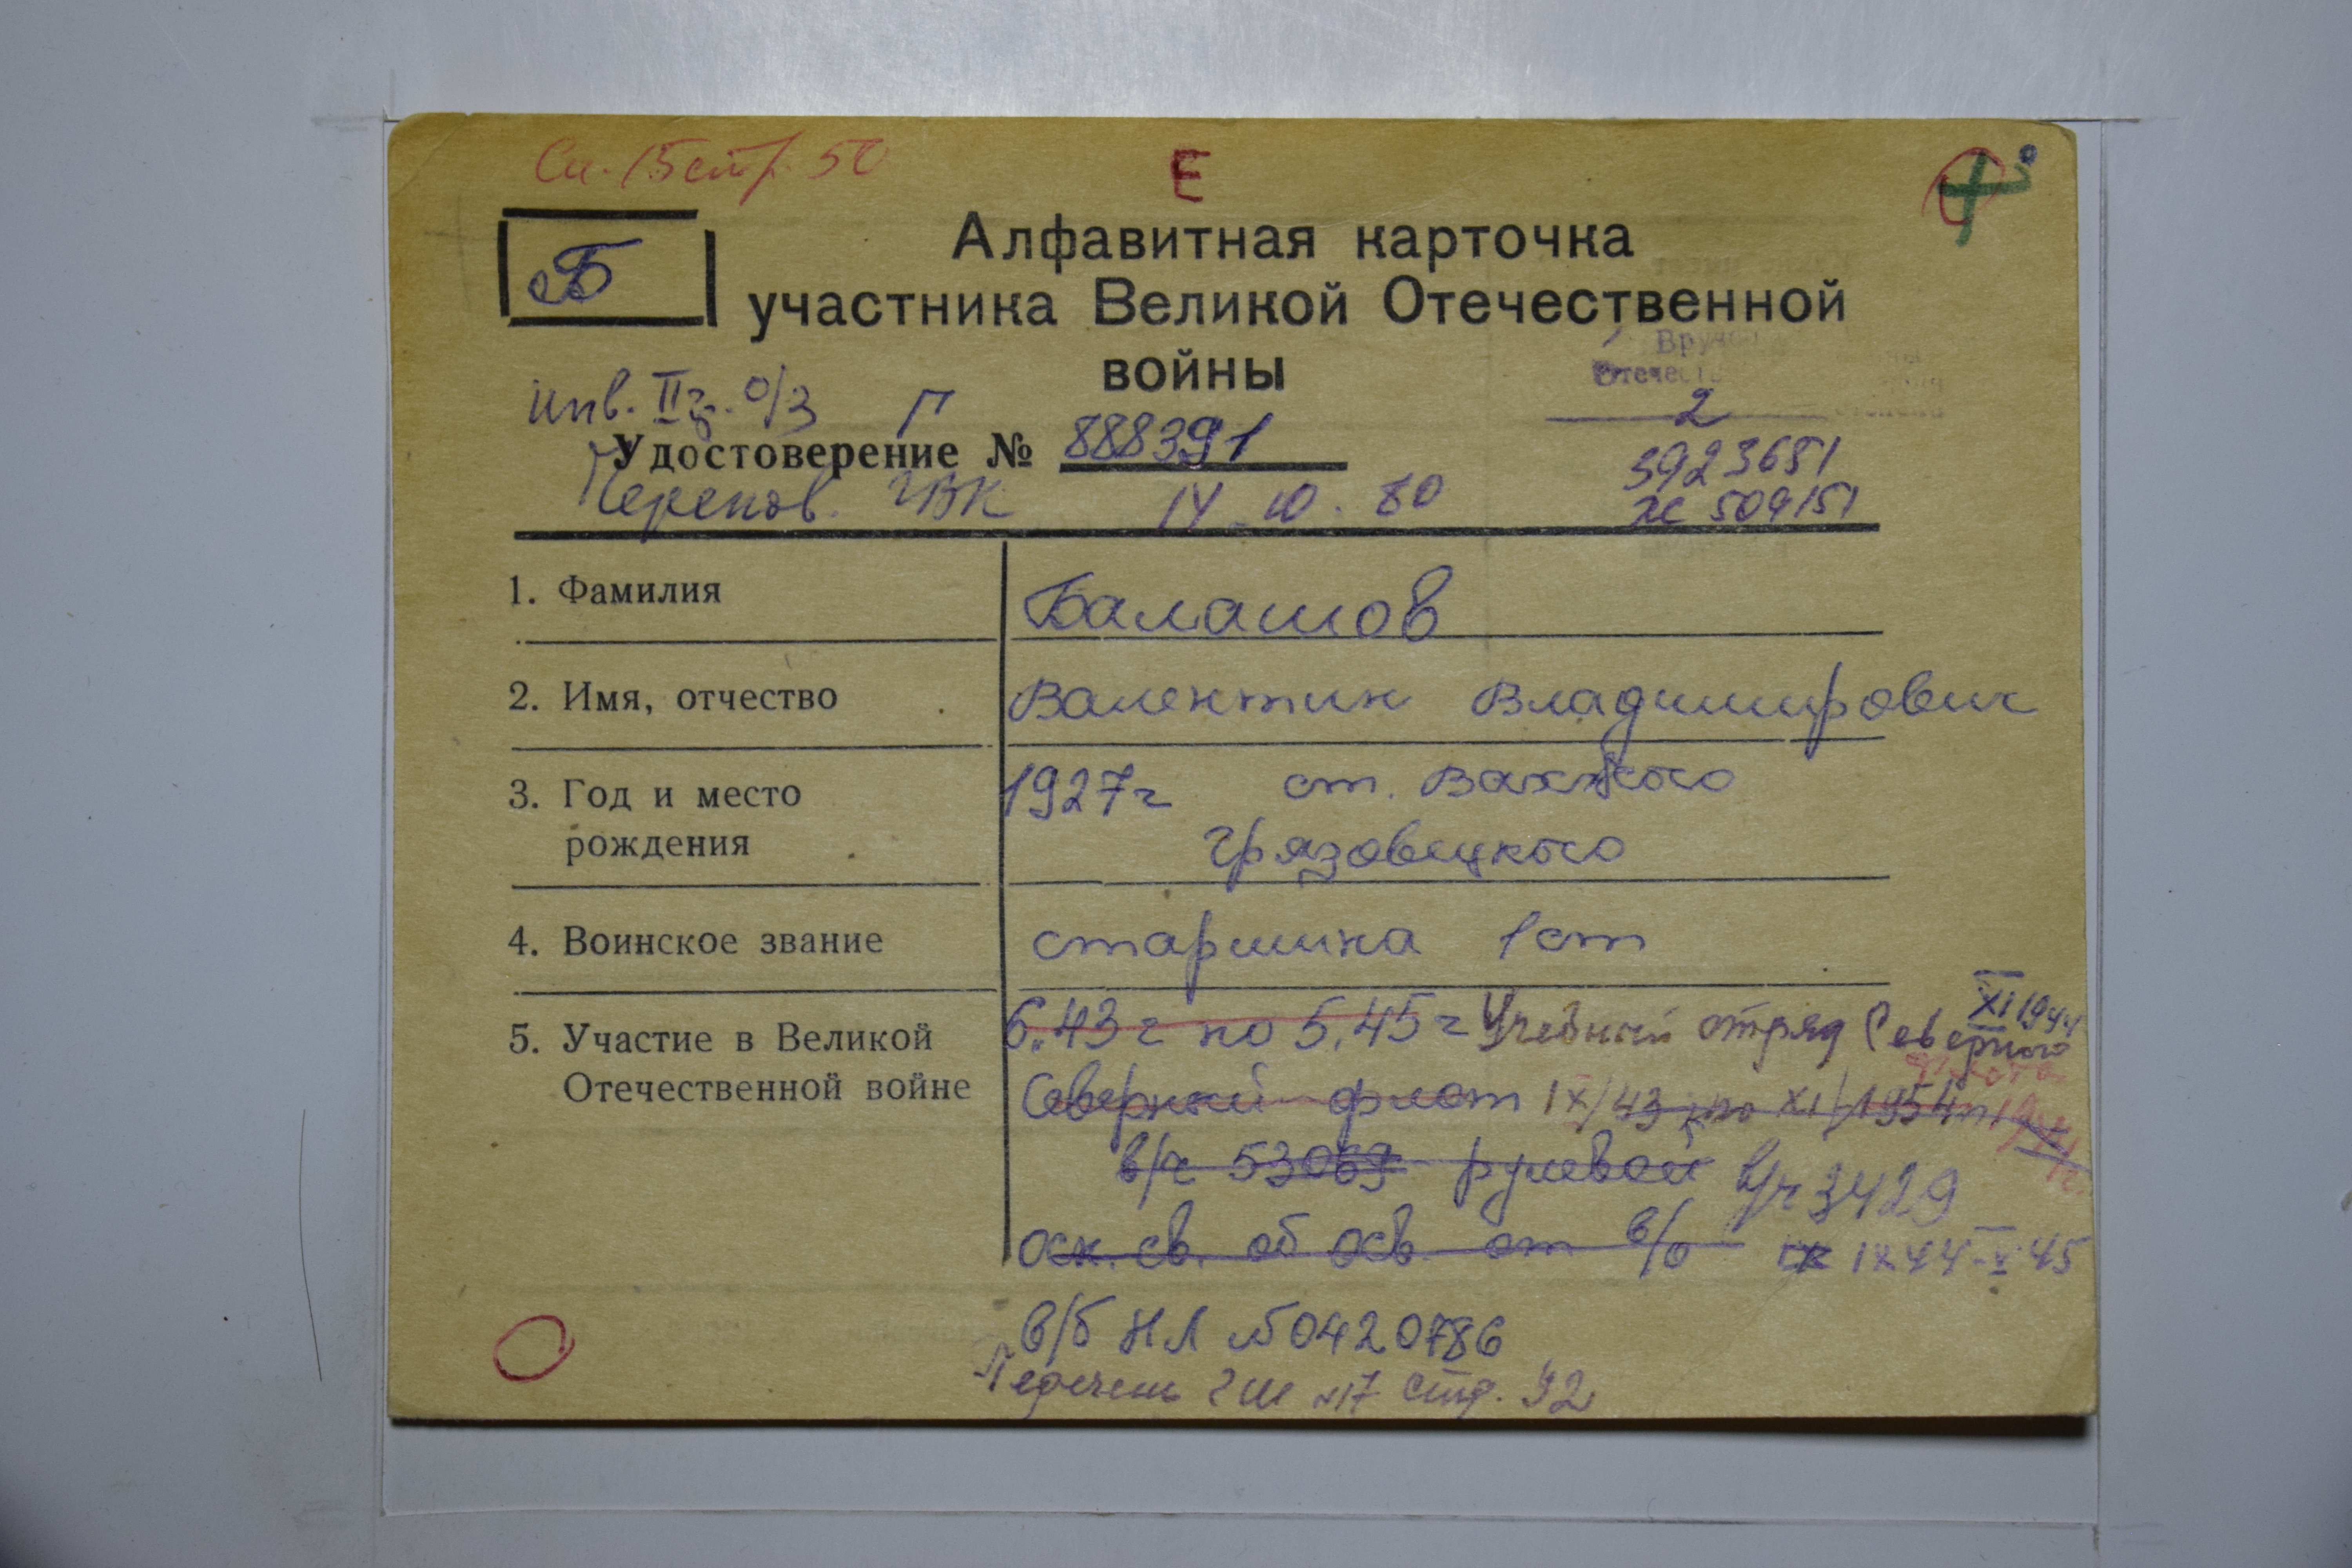 Сп. 15 стр. 50
Е
Б
Алфавитная карточка
участника Великой Отечественной
войны
Вруч
Отечест
инв. II гр. о/з Г
2
Удостоверение № 888391
3923651
Черепов. ГВК 14.10.80
509151
1. Фамилия
Балашов
2. Имя, отчество
Валентин Владимирович
3. Год и место
рождения
1927г ст.
Грязовецкого
4. Воинское звание
старшина 1 ст
5. Участие в Великой
Отечественной войне
6.43г по 5.45г Учебный отряд Северного
XI 1944
флота
Северный флот IX/43 по XI/1954
в/ч 53069 рулевой в/ч 3429
оск. св. об осв. от в/о IX 44-V 45
в/б НЛ №0420786
Перечень ГШ №17 стр. 92